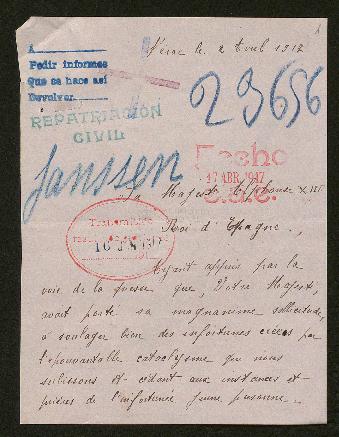 A
Pedir informes
Que se hace así
Devolver
REPATRIACION
CIVIL
le 2 Avril 1917
29656
Janssen
Fecho
17 ABR. 1917
Sa Majesté Alphonse XIII
Roi d'Espagne.,
Ayant appris par la
voie de la presse que, Votre Majesté,
avait porté sa magnanime sollicitude,
à soulager bien des infortunes créées par
l'épouvantable cataclysme que nous
subissons et cédant aux instances et
prières de l'infortunée jeune personne